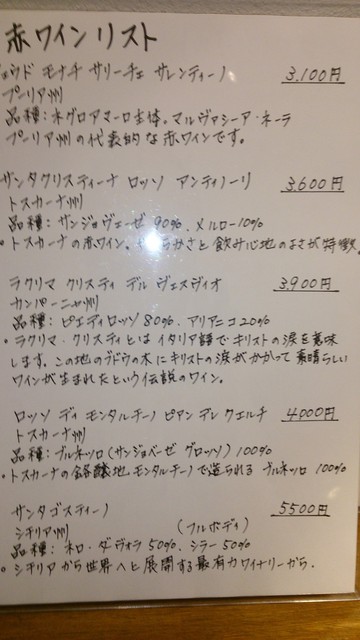 赤ワインリスト
ジェウド モナチ サリーチェ サレンティーノ 3,100円
プーリア州
品種：ネグロアマーロ主体。マルヴァシーア・ネーラ
プーリア州の代表的な赤ワインです。
サンタクリスティーナ ロッソ アンティノーリ 3,600円
トスカーナ州
品種：サンジョヴェーゼ 90%、メルロー10%
・トスカーナの赤ワイン。 らかさと飲み心地のよさが特徴
ラクリマ クリスティ デル ヴェスヴィオ 3,900円
カンパーニャ州
品種：ピエディロッソ 80%、アリアニコ20%
・ラクリマ・クリスティとはイタリア語でキリストの涙を意味
します。この地のブドウの木にキリストの涙がかかって素晴らしい
ワインが生まれたという伝説のワイン。
ロッソ ディ モンタルチーノ ピアン デレ ヴィーニェ 4000円
トスカーナ州
品種：ブルネッロ（サンジョベーゼ グロッソ）100%
・トスカーナの銘醸地、モンタルチーノで造られる ブルネッロ 100%
サンタゴスティーノ 5500円
シチリア州 （フルボディ）
品種：ネロ・ダヴォラ 50%、シラー 50%
・シチリアから世界へと展開する最有力ワイナリーから。